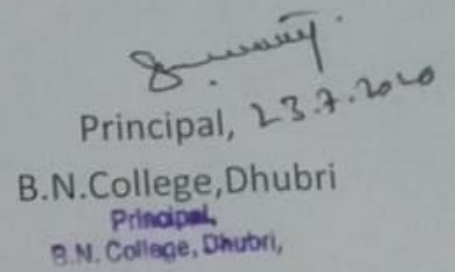 Principal, 23.7.2020
B.N.College,Dhubri
Principal,
B.N. College, Dhubri,